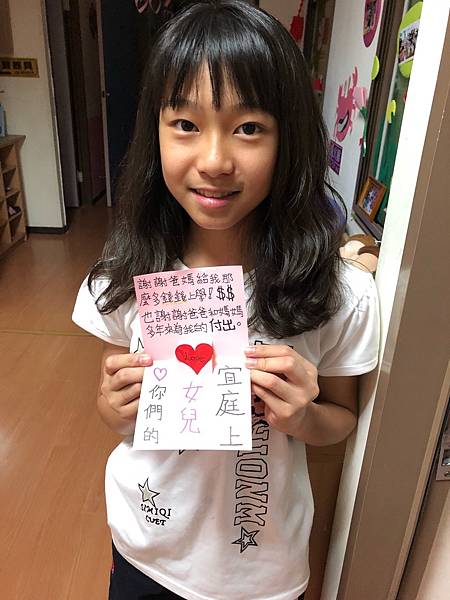 謝謝爸媽給我那
麼多錢錢上學!$$
也謝謝爸爸和媽媽
多年來為我的付出。
Love
♡你們的
女兒
宜庭上